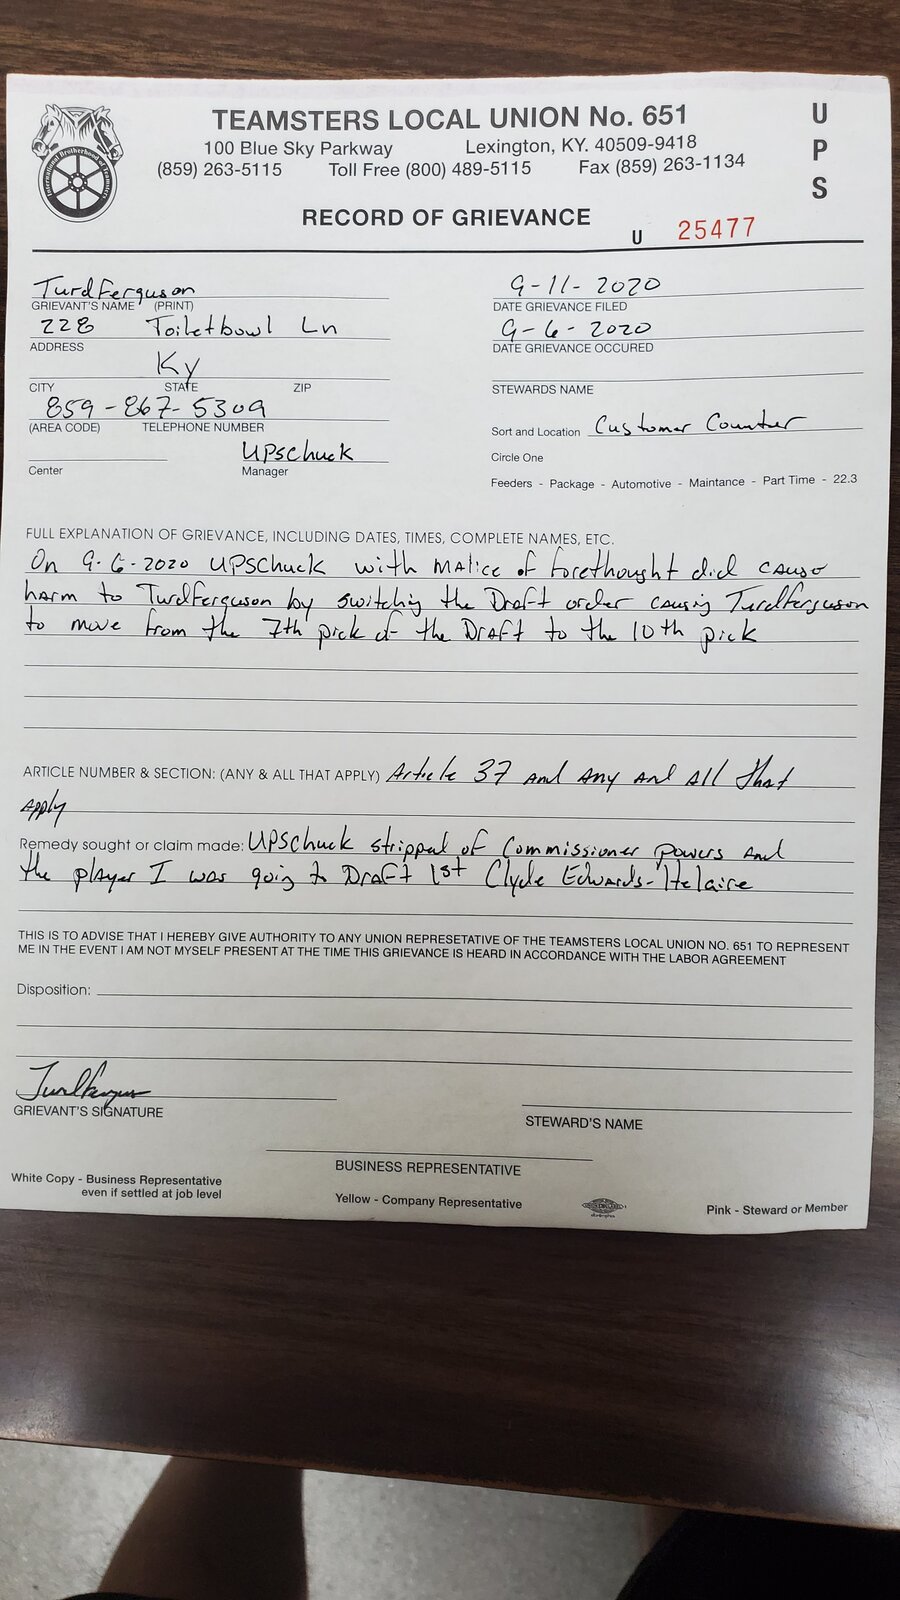 TEAMSTERS LOCAL UNION No. 651
UPS
100 Blue Sky Parkway Lexington, KY. 40509-9418
(859) 263-5115 Toll Free (800) 489-5115 Fax (859) 263-1134
International Brotherhood of Teamsters
RECORD OF GRIEVANCE
U 25477
TurdFerguson
GRIEVANT'S NAME (PRINT)
9-11-2020
DATE GRIEVANCE FILED
228 Toiletbowl Ln
ADDRESS
9-6-2020
DATE GRIEVANCE OCCURED
Ky
CITY STATE ZIP
STEWARDS NAME
859-867-5309
(AREA CODE) TELEPHONE NUMBER
Sort and Location Customer Counter
UPSChuck
Center Manager
Circle One
Feeders - Package - Automotive - Maintance - Part Time - 22.3
FULL EXPLANATION OF GRIEVANCE, INCLUDING DATES, TIMES, COMPLETE NAMES, ETC.
On 9-6-2020 UPSChuck with Malice of forethought did cause
harm to TurdFerguson by switching the Draft order causing Turdferguson
to move from the 7th pick of the Draft to the 10th pick
ARTICLE NUMBER & SECTION: (ANY & ALL THAT APPLY) Article 37 and Any and All that
Apply
Remedy sought or claim made: UPSChuck stripped of Commissioner powers and
the player I was going to Draft 1st Clyde Edwards-Helaire
THIS IS TO ADVISE THAT I HEREBY GIVE AUTHORITY TO ANY UNION REPRESETATIVE OF THE TEAMSTERS LOCAL UNION NO. 651 TO REPRESENT
ME IN THE EVENT I AM NOT MYSELF PRESENT AT THE TIME THIS GRIEVANCE IS HEARD IN ACCORDANCE WITH THE LABOR AGREEMENT
Disposition:
GRIEVANT'S SIGNATURE
STEWARD'S NAME
BUSINESS REPRESENTATIVE
White Copy - Business Representative
even if settled at job level
Yellow - Company Representative
Pink - Steward or Member